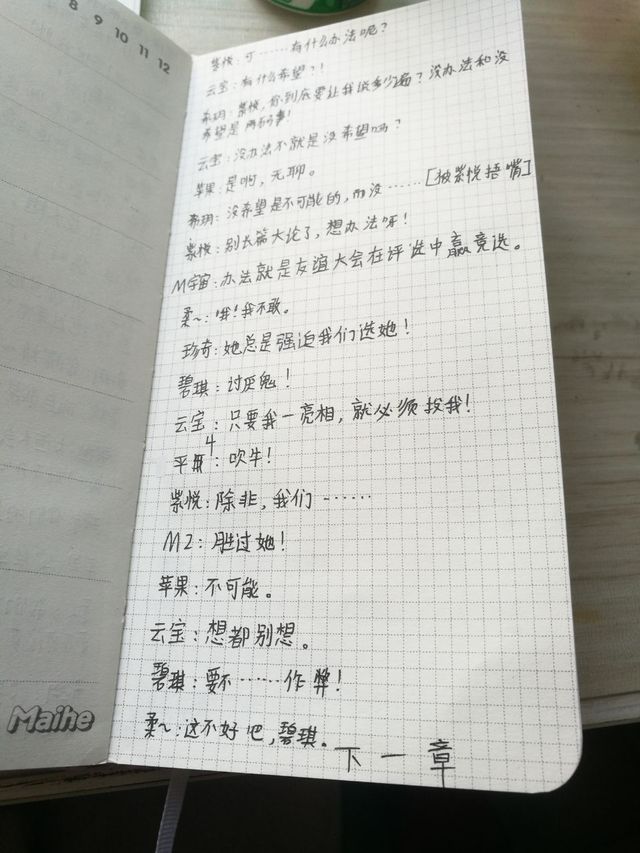 8 9 10 11 12
紫悦：可……有什么办法呢？
云宝：有什么希望？！
希玥：紫悦，你到底要让我说多少遍？没办法和没
希望是两码事！
云宝：没办法不就是没希望吗？
苹果：是啊，无聊。
希玥：没希望是不可能的，而没……[被紫悦捂嘴]
紫悦：别长篇大论了，想办法呀！
M宇宙：办法就是友谊大会在评选中赢竞选。
柔～：哦！我不敢。
珍奇：她总是强迫我们选她！
碧琪：讨厌鬼！
云宝：只要我一亮相，就必须投我！
平 4：吹牛！
紫悦：除非，我们……
M2：胜过她！
苹果：不可能。
云宝：想都别想。
碧琪：要不……作弊！
柔～：这不好吧，碧琪。
下一章
Maihe